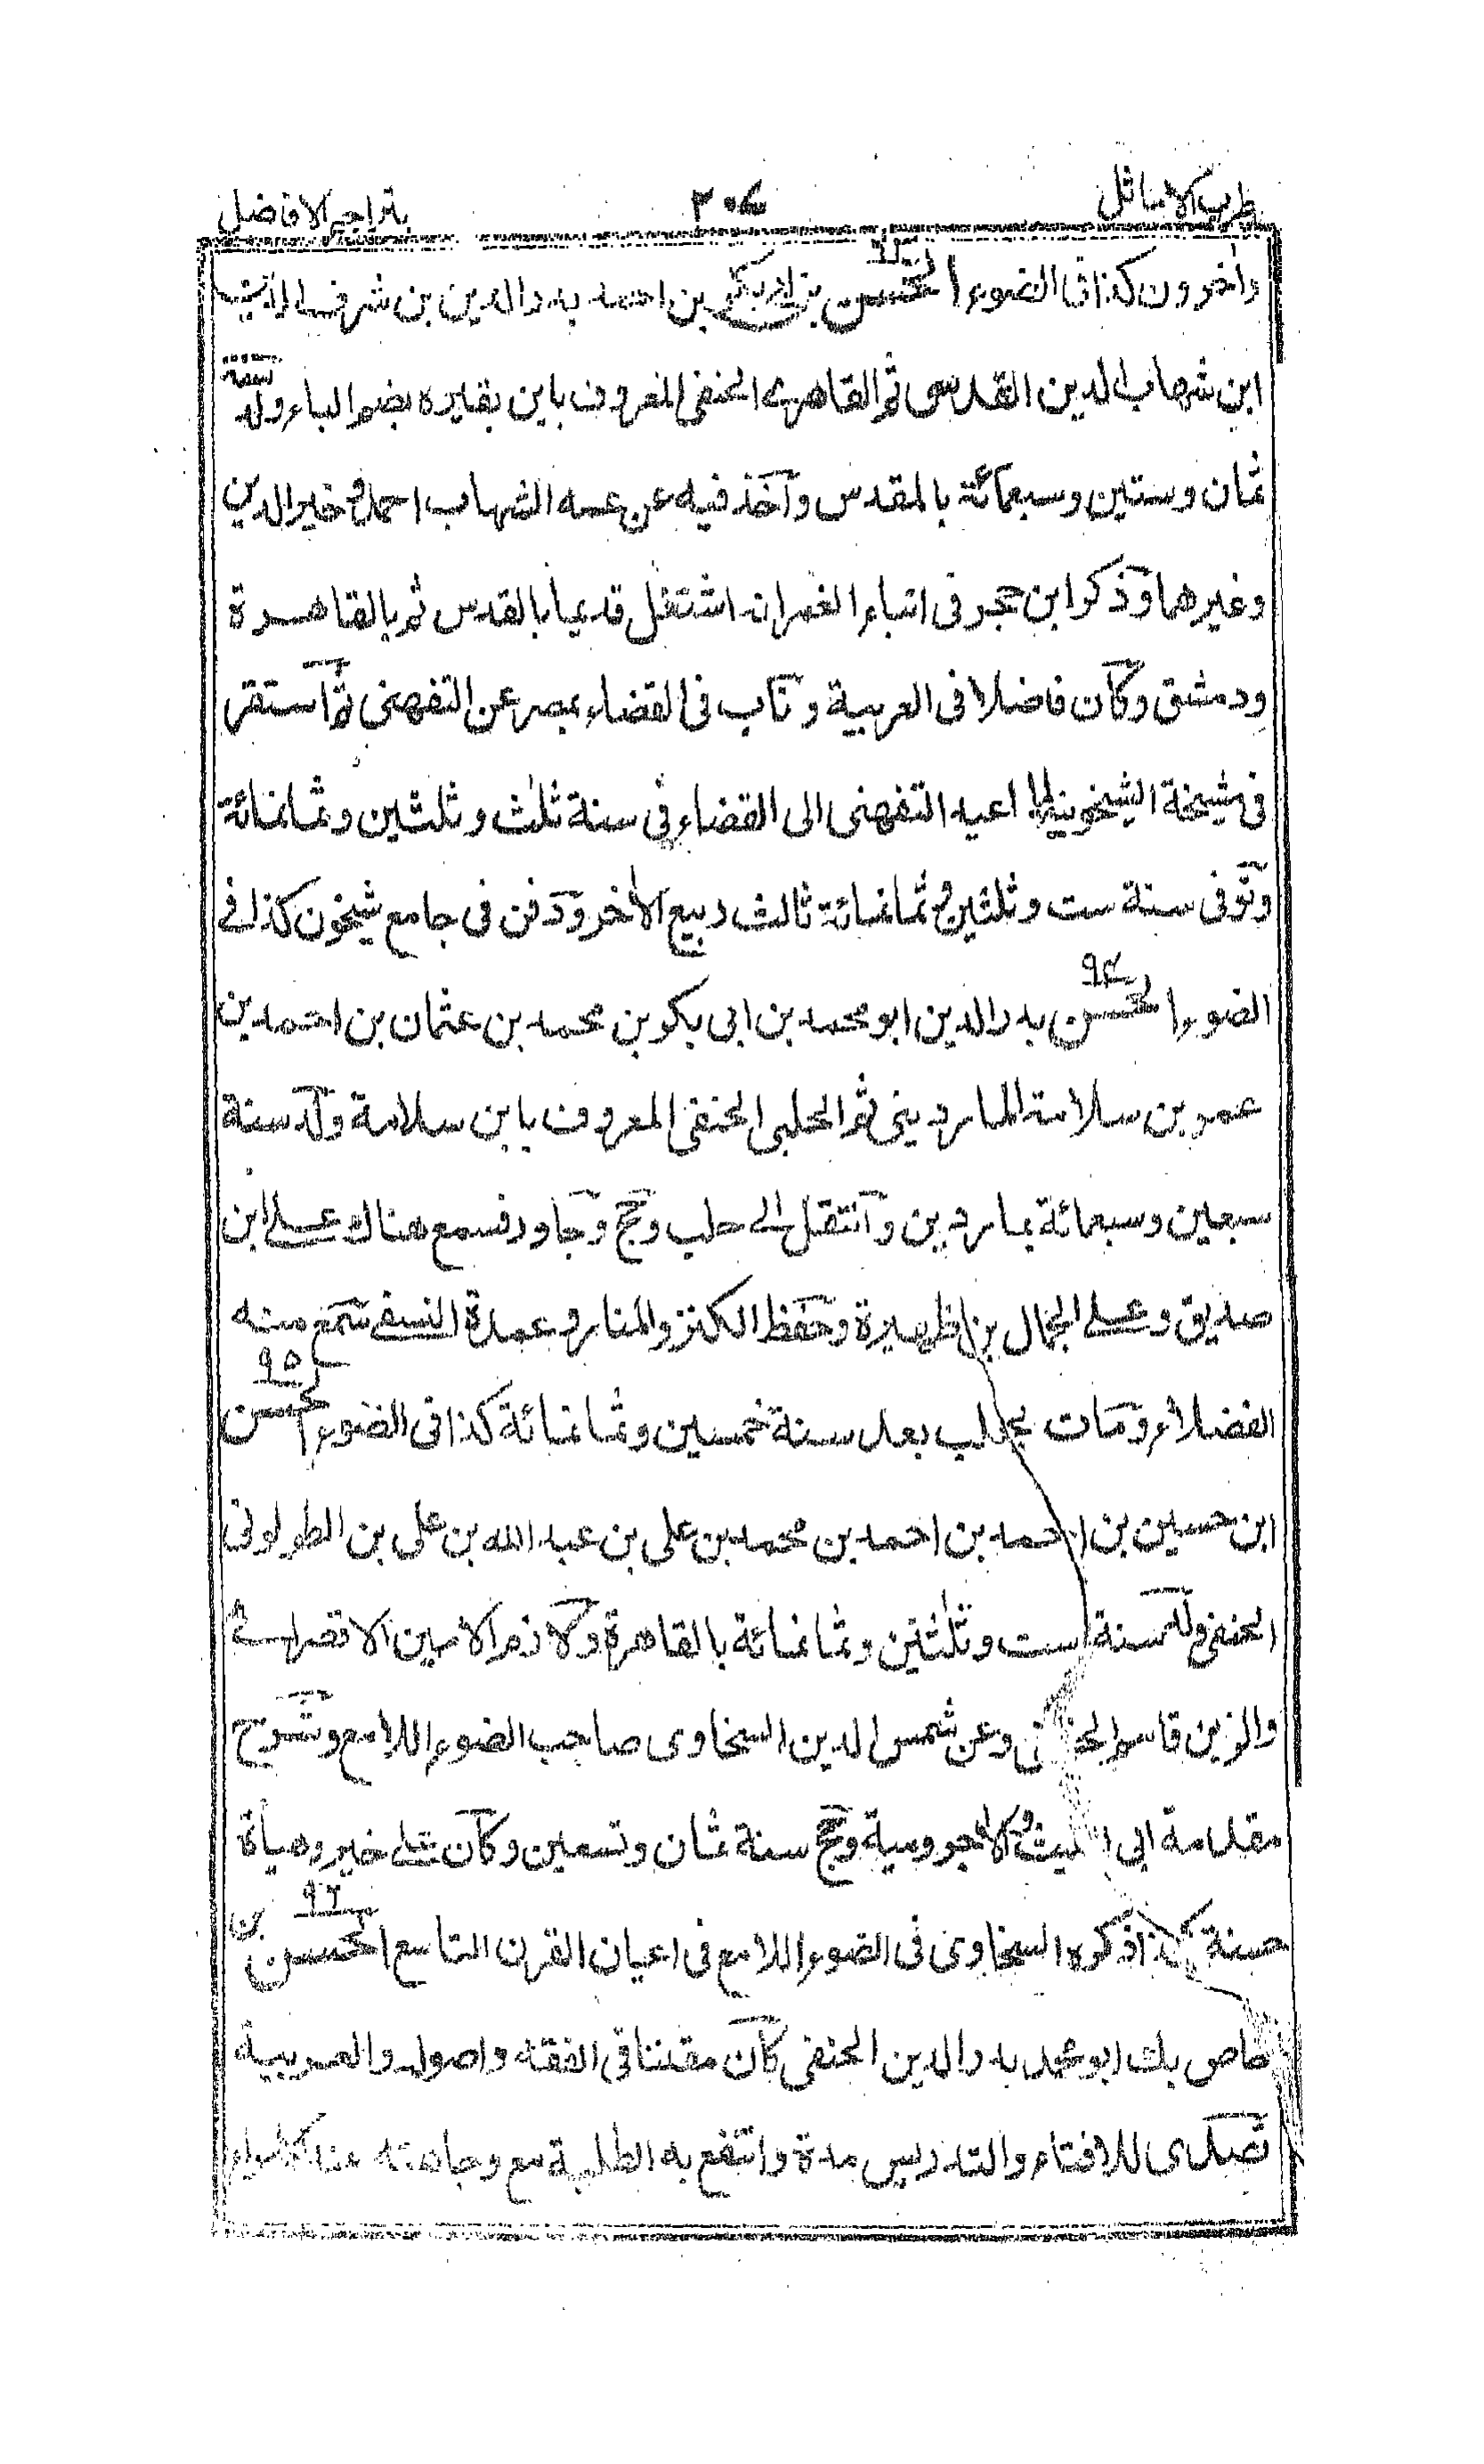 طرب الاماثل ٢٠٤ بتراجم الافاضل
واخرون كذا فى الضوء الحسن بن ابى بكر بن احمد بدر الدين بن شرف الدين
ابن شهاب الدين القدسى ثم القاهرى الحنفى المعروف بابن بقيره بضم الباء ولد سنة
ثمان وستين وسبعمائة بالمقدس وآخذ فيه عن عمه الشهاب احمد وخير الدين
وغيرهما وذكر ابن حجر فى انباء الغمر انه اشتغل قديما بالقدس ثم بالقاهرة
ودمشق وكان فاضلا فى العربية وناب فى القضاء بمصر عن التفهنى ثم استقر
فى مشيخة الشيخونية لما اعيد التفهنى الى القضاء فى سنة ثلث وثلثين وثمانمائة
وتوفى سنة ست وثلثين وثمانمائة ثالث ربيع الآخر ودفن فى جامع شيخون كذا فے
الضوء الحسن ٩٤ بدر الدين ابو محمد بن ابى بكر بن محمد بن عثمان بن احمد بن
عمر بن سلامة الماردينى ثم الحلبى الحنفى المعروف بابن سلامة ولد سنة
سبعين وسبعمائة بماردين وانتقل الے حلب وحج وجاور فسمع هناك علے ابن
صديق وعلے الجمال بن ظهيرة وحفظ الكنز والمنار وعمدة النسفے سمع منه
الفضلاء ومات بحلب بعد سنة خمسين وثمانمائة كذا فى الضوء الحسن ٩٥
ابن حسين بن احمد بن احمد بن محمد بن على بن عبد الله بن على بن الطولونى
الحنفى ولد سنة ست وثلثين وثمانمائة بالقاهرة ولازم الامين الاقصرائے
والزين قاسم الحنفى وعن شمس الدين السخاوى صاحب الضوء اللامع وشرح
مقدمة ابى الليث والاجرومية وحج سنة ثمان وتسعين وكان علے خير وهيأة
حسنة كذا ذكره السخاوى فى الضوء اللامع فى اعيان القرن التاسع الحسن ٩٦ بن
خاص بك ابو محمد بدر الدين الحنفى كان مفننا فى الفقه واصوله والعربية
تصدى للافتاء والتدريس مدة وانتفع به الطلبة مع وجاهته عند